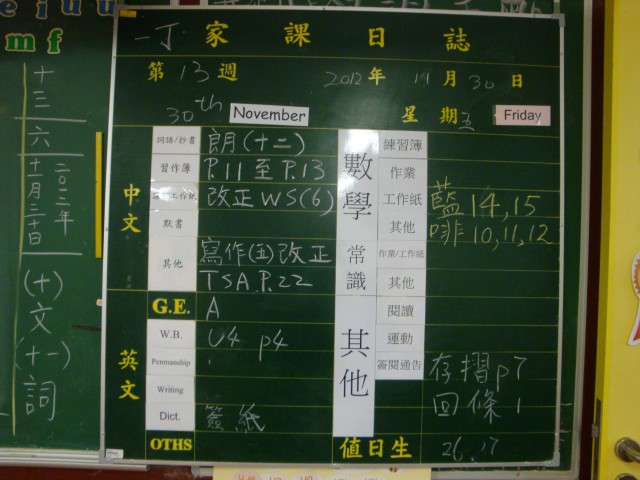 e i u u
m f
十三
六
二〇一二年
十一月三十日
(十)文
(十一)詞
一丁 家課日誌
第13週 2012年 11月30日
30th November 星期五 Friday
中文
詞語/抄書 朗(十二)
習作簿 P.11 至 P.13
工作紙 改正WS(6)
默書
其他 寫作(五)改正
TSA P.22
英文
G.E. A
W.B. U4 p4
Penmanship
Writing
Dict. 簽紙
OTHS
數學
練習簿
作業
工作紙 藍14,15
其他 啡10,11,12
常識
作業/工作紙
其他
其他
閱讀
運動
簽閱通告 存摺p7
回條1
值日生 26,17